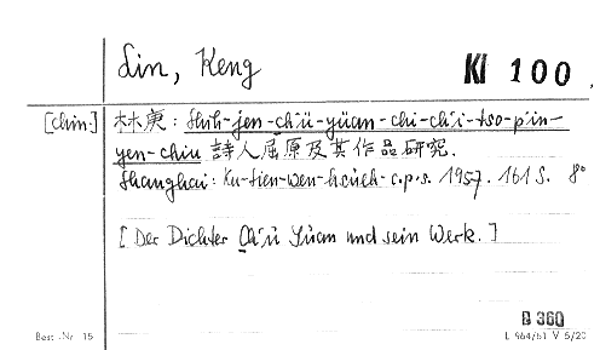 Lin, Keng
KI 100
[chin.] 林庚: Shih-jen-ch'ü-yüan-chi-ch'i-tso-p'in-
yen-chiu 詩人屈原及其作品研究.
Shanghai: Ku-tien-wen-hsüeh-c.p.s. 1957. 161 S. 8°
[Der Dichter Ch'ü Yüan und sein Werk.]
B 360
Best.-Nr. 15
L 964/61 V 5/20